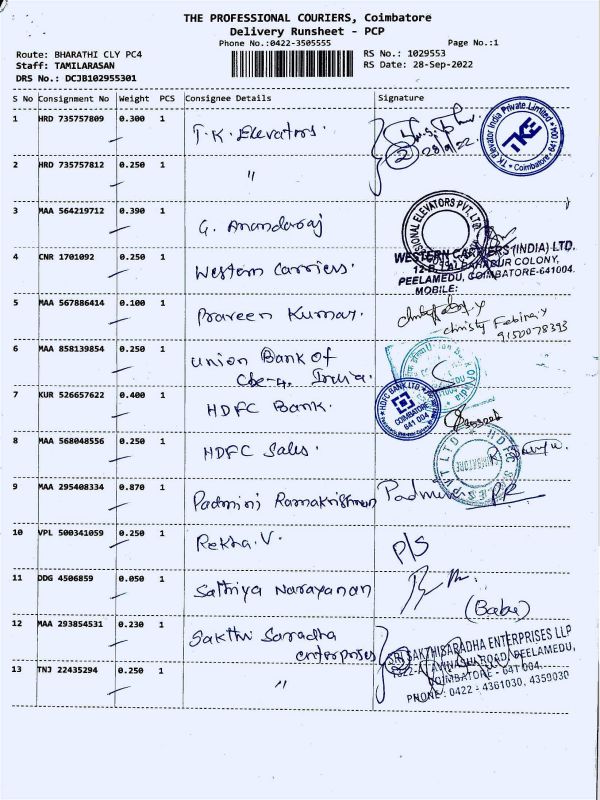 THE PROFESSIONAL COURIERS, Coimbatore
Delivery Runsheet - PCP
Phone No.:0422-3505555 Page No.:1
Route: BHARATHI CLY PC4 RS No.: 1029553
Staff: TAMILARASAN RS Date: 28-Sep-2022
DRS No.: DCJB102955301
S No Consignment No Weight PCS Consignee Details Signature
1 HRD 735757809 0.300 1 T.K. Elevators.
TK Elevator India Private Limited
TKE
* Coimbatore - 641 004 *
2 HRD 735757812 0.250 1 "
2 28/9/22
3 MAA 564219712 0.390 1 G. Anandaraj
ELEVATORS PVT. LTD
4 CNR 1701092 0.250 1 Western Carriers.
WESTERN CARRIERS (INDIA) LTD.
COLONY,
PEELAMEDU, COIMBATORE-641004.
MOBILE:
5 MAA 567886414 0.100 1 Praveen Kumar.
Christy Febina.y
9150078393
6 MAA 858139854 0.250 1 Union Bank of
Cbe-4. India.
7 KUR 526657622 0.400 1 HDFC Bank.
HDFC BANK LTD.
COIMBATORE
641 004
8 MAA 568048556 0.250 1 HDFC Sales.
9 MAA 295408334 0.870 1 Padmini Ramakrishnan Padmini PR
10 VPL 500341059 0.250 1 Rekha.V. P/S
11 DDG 4506859 0.050 1 Sathiya Narayanan
(Babu)
12 MAA 293854531 0.230 1 Sakthi Saradha
enterprises
SRI SAKTHISARADHA ENTERPRISES LLP
AVINASHI ROAD, PEELAMEDU,
COIMBATORE - 641 004.
PHONE: 0422 - 4361030, 4359030
13 TNJ 22435294 0.250 1 "